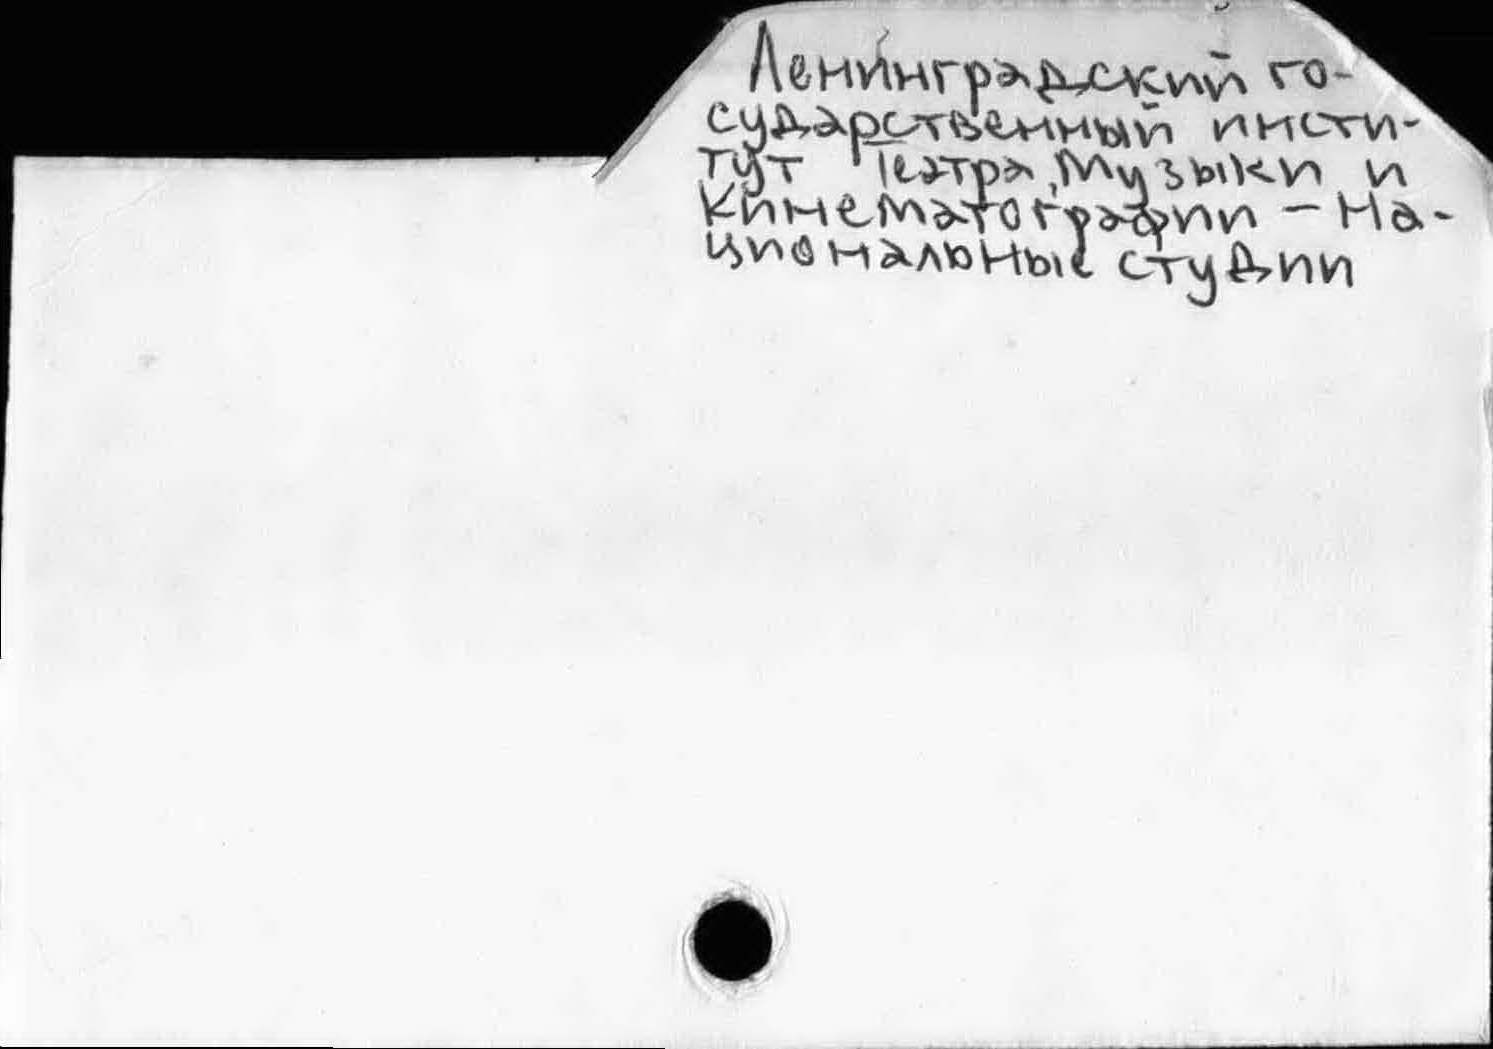 Ленинградский го-
сударственный инсти-
тут Театра, Музыки и
Кинематографии - На-
циональные студии